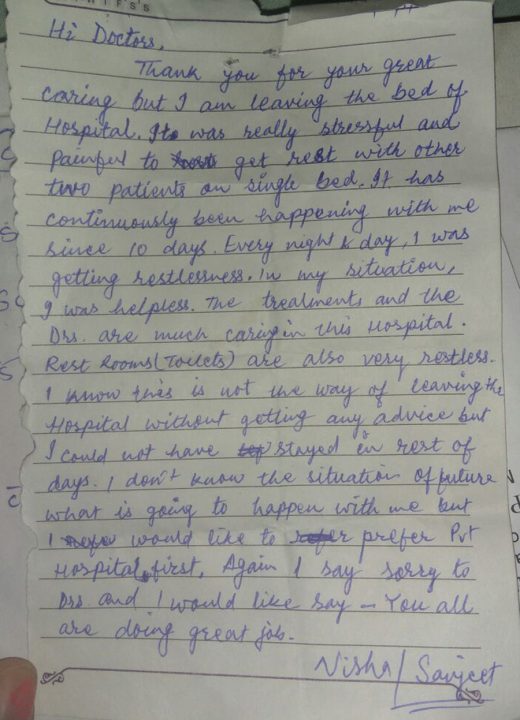 Hi Doctors,
Thank you for your great
caring but I am leaving the bed of
Hospital. It was really stressful and
Painful to get rest with other
two patients on single bed. It has
continuously been happening with me
since 10 days. Every night & day, I was
getting restlessness. In my situation,
I was helpless. The treatments and the
Drs. are much caring in this Hospital.
Rest Rooms (Toilets) are also very restless.
I know this is not the way of leaving the
Hospital without getting any advice but
I could not have stayed in rest of
days. I don't know the situation of future
what is going to happen with me but
I would like to prefer Pvt
Hospital first. Again I say sorry to
Drs. and I would like say – You all
are doing great job.
Nisha / Savjeet